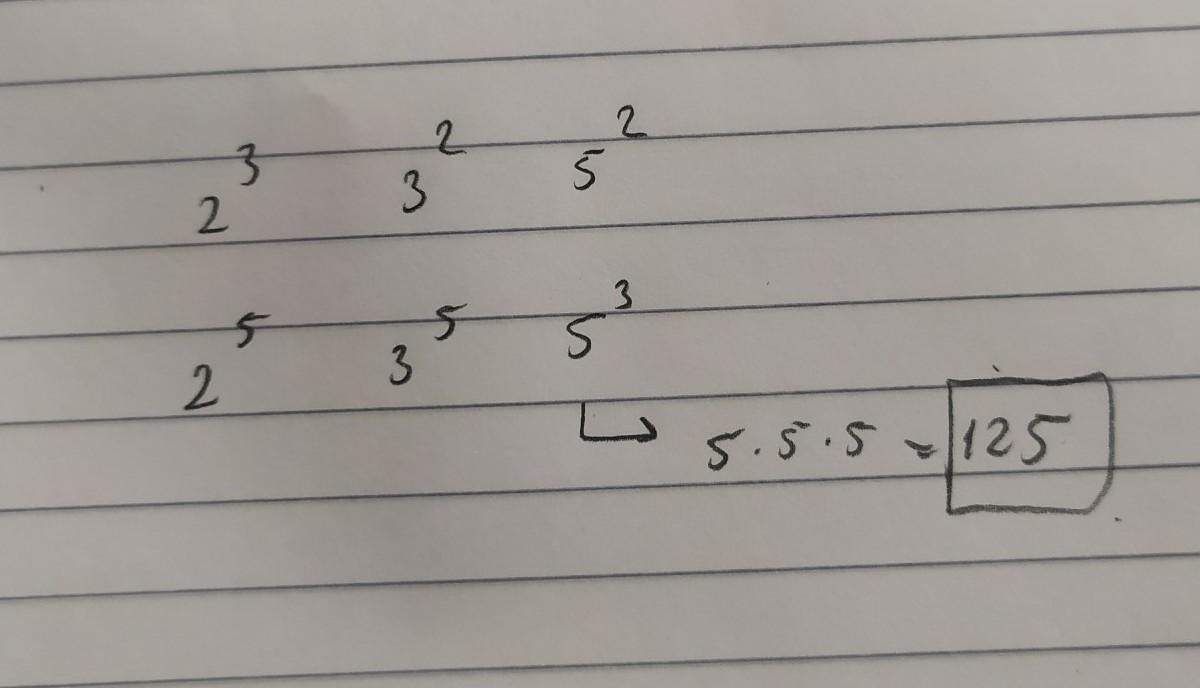 2³ 3² 5²
2⁵ 3⁵ 5³
↳ 5·5·5 = 125